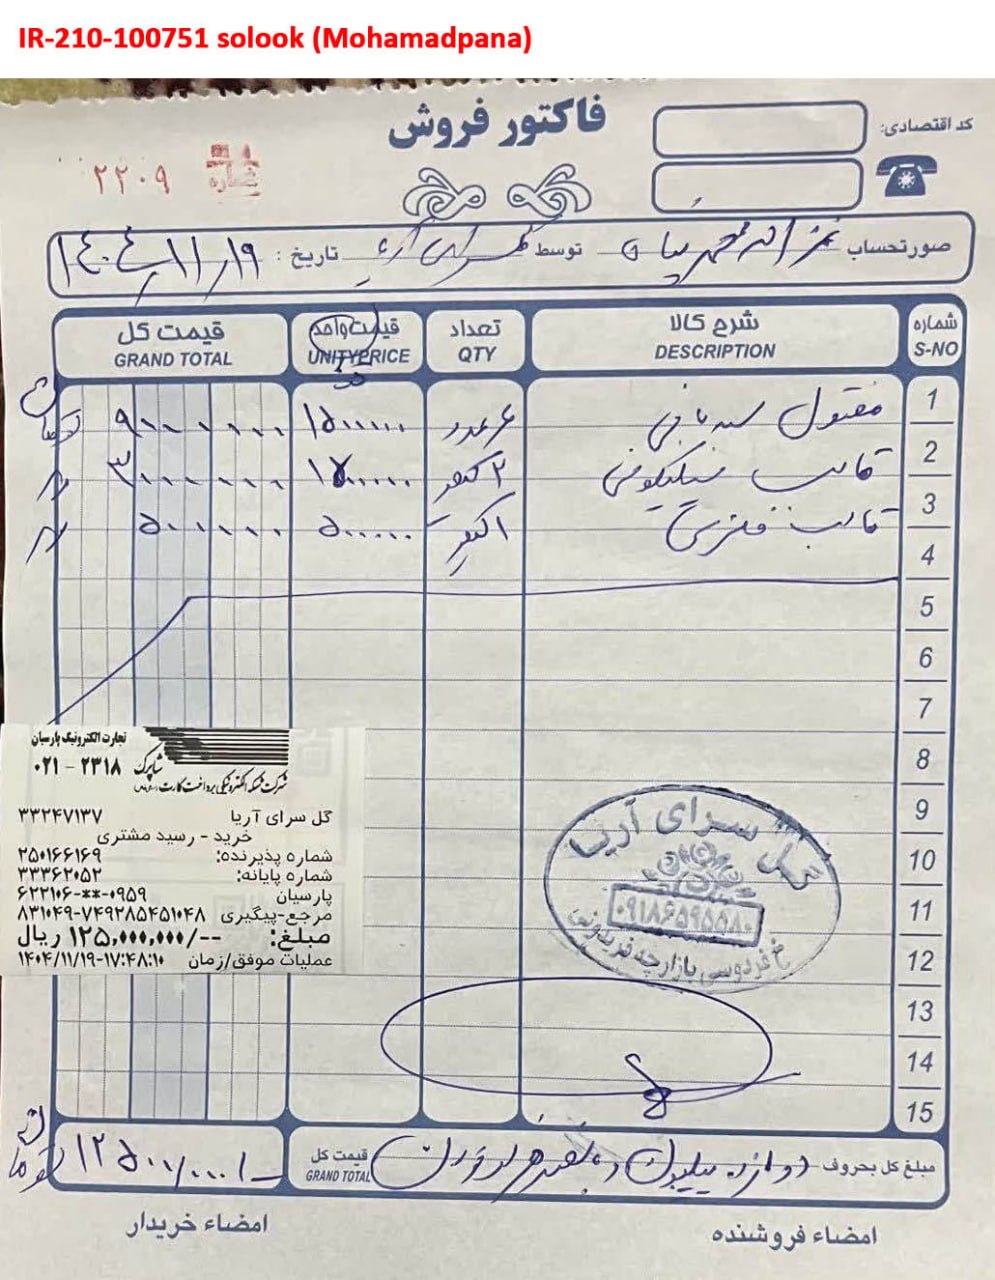 IR-210-100751 solook (Mohamadpana)
فاکتور فروش
کد اقتصادی:
شماره ۲۲۰۹
صورتحساب توسط گلسرای آریا تاریخ: ۱۴۰۴/۱۱/۱۹
شماره S-NO شرح کالا DESCRIPTION تعداد QTY قیمت واحد UNITYPRICE قیمت کل GRAND TOTAL
1 مفتول سبد بافی ۶ عدد ۱۵۰۰۰۰۰ ۹۰۰۰۰۰۰ تومان
2 قالب سیلیکونی ۲ کیلو ۱۵۰۰۰۰۰ ۳۰۰۰۰۰۰
3 قالب فلزی ۱ کیلو ۵۰۰۰۰۰ ۵۰۰۰۰۰
4
5
6
7
8
9
10
11
12
13
14
15
تجارت الکترونیک پارسیان
شاپرک ۰۲۱ - ۲۳۱۸
شرکت شبکه الکترونیکی پرداخت کارت
گل سرای آریا ۳۳۲۴۷۱۳۷
خرید - رسید مشتری
شماره پذیرنده: ۲۵۰۱۶۶۱۶۹
شماره پایانه: ۳۳۳۶۲۰۵۲
پارسیان ۶۲۲۱۰۶-**-۰۹۵۹
مرجع-پیگیری ۸۳۱۰۴۹-۷۴۹۲۸۵۴۵۱۰۴۸
مبلغ: ۱۲۵,۰۰۰,۰۰۰/-- ریال
عملیات موفق/زمان ۱۴۰۴/۱۱/۱۹-۱۷:۴۸:۱۰
گل سرای آریا
۰۹۱۸۶۵۹۵۵۸۰
خ فردوسی بازارچه فریدونی
مبلغ کل بحروف دوازده میلیون و پانصد هزار تومان قیمت کل GRAND TOTAL ۱۲۵۰۰/۰۰۰/- تومان
امضاء فروشنده امضاء خریدار